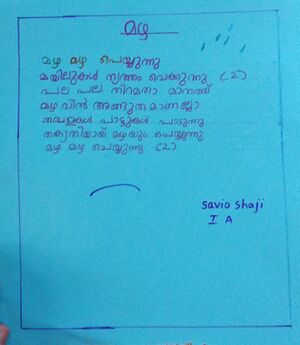 മഴ
മഴ മഴ പെയ്യുന്നു
മയിലുകൾ നൃത്തം വെക്കുന്നു (2)
പല പല നിറമതാ മാനത്ത്
മഴവിൻ അത്ഭുതമാണല്ലോ
തവളകൾ പാട്ടുകൾ പാടുന്നു
മഴയും പെയ്യുന്നു
മഴ മഴ പെയ്യുന്നു (2)
Savio Shaji
I A